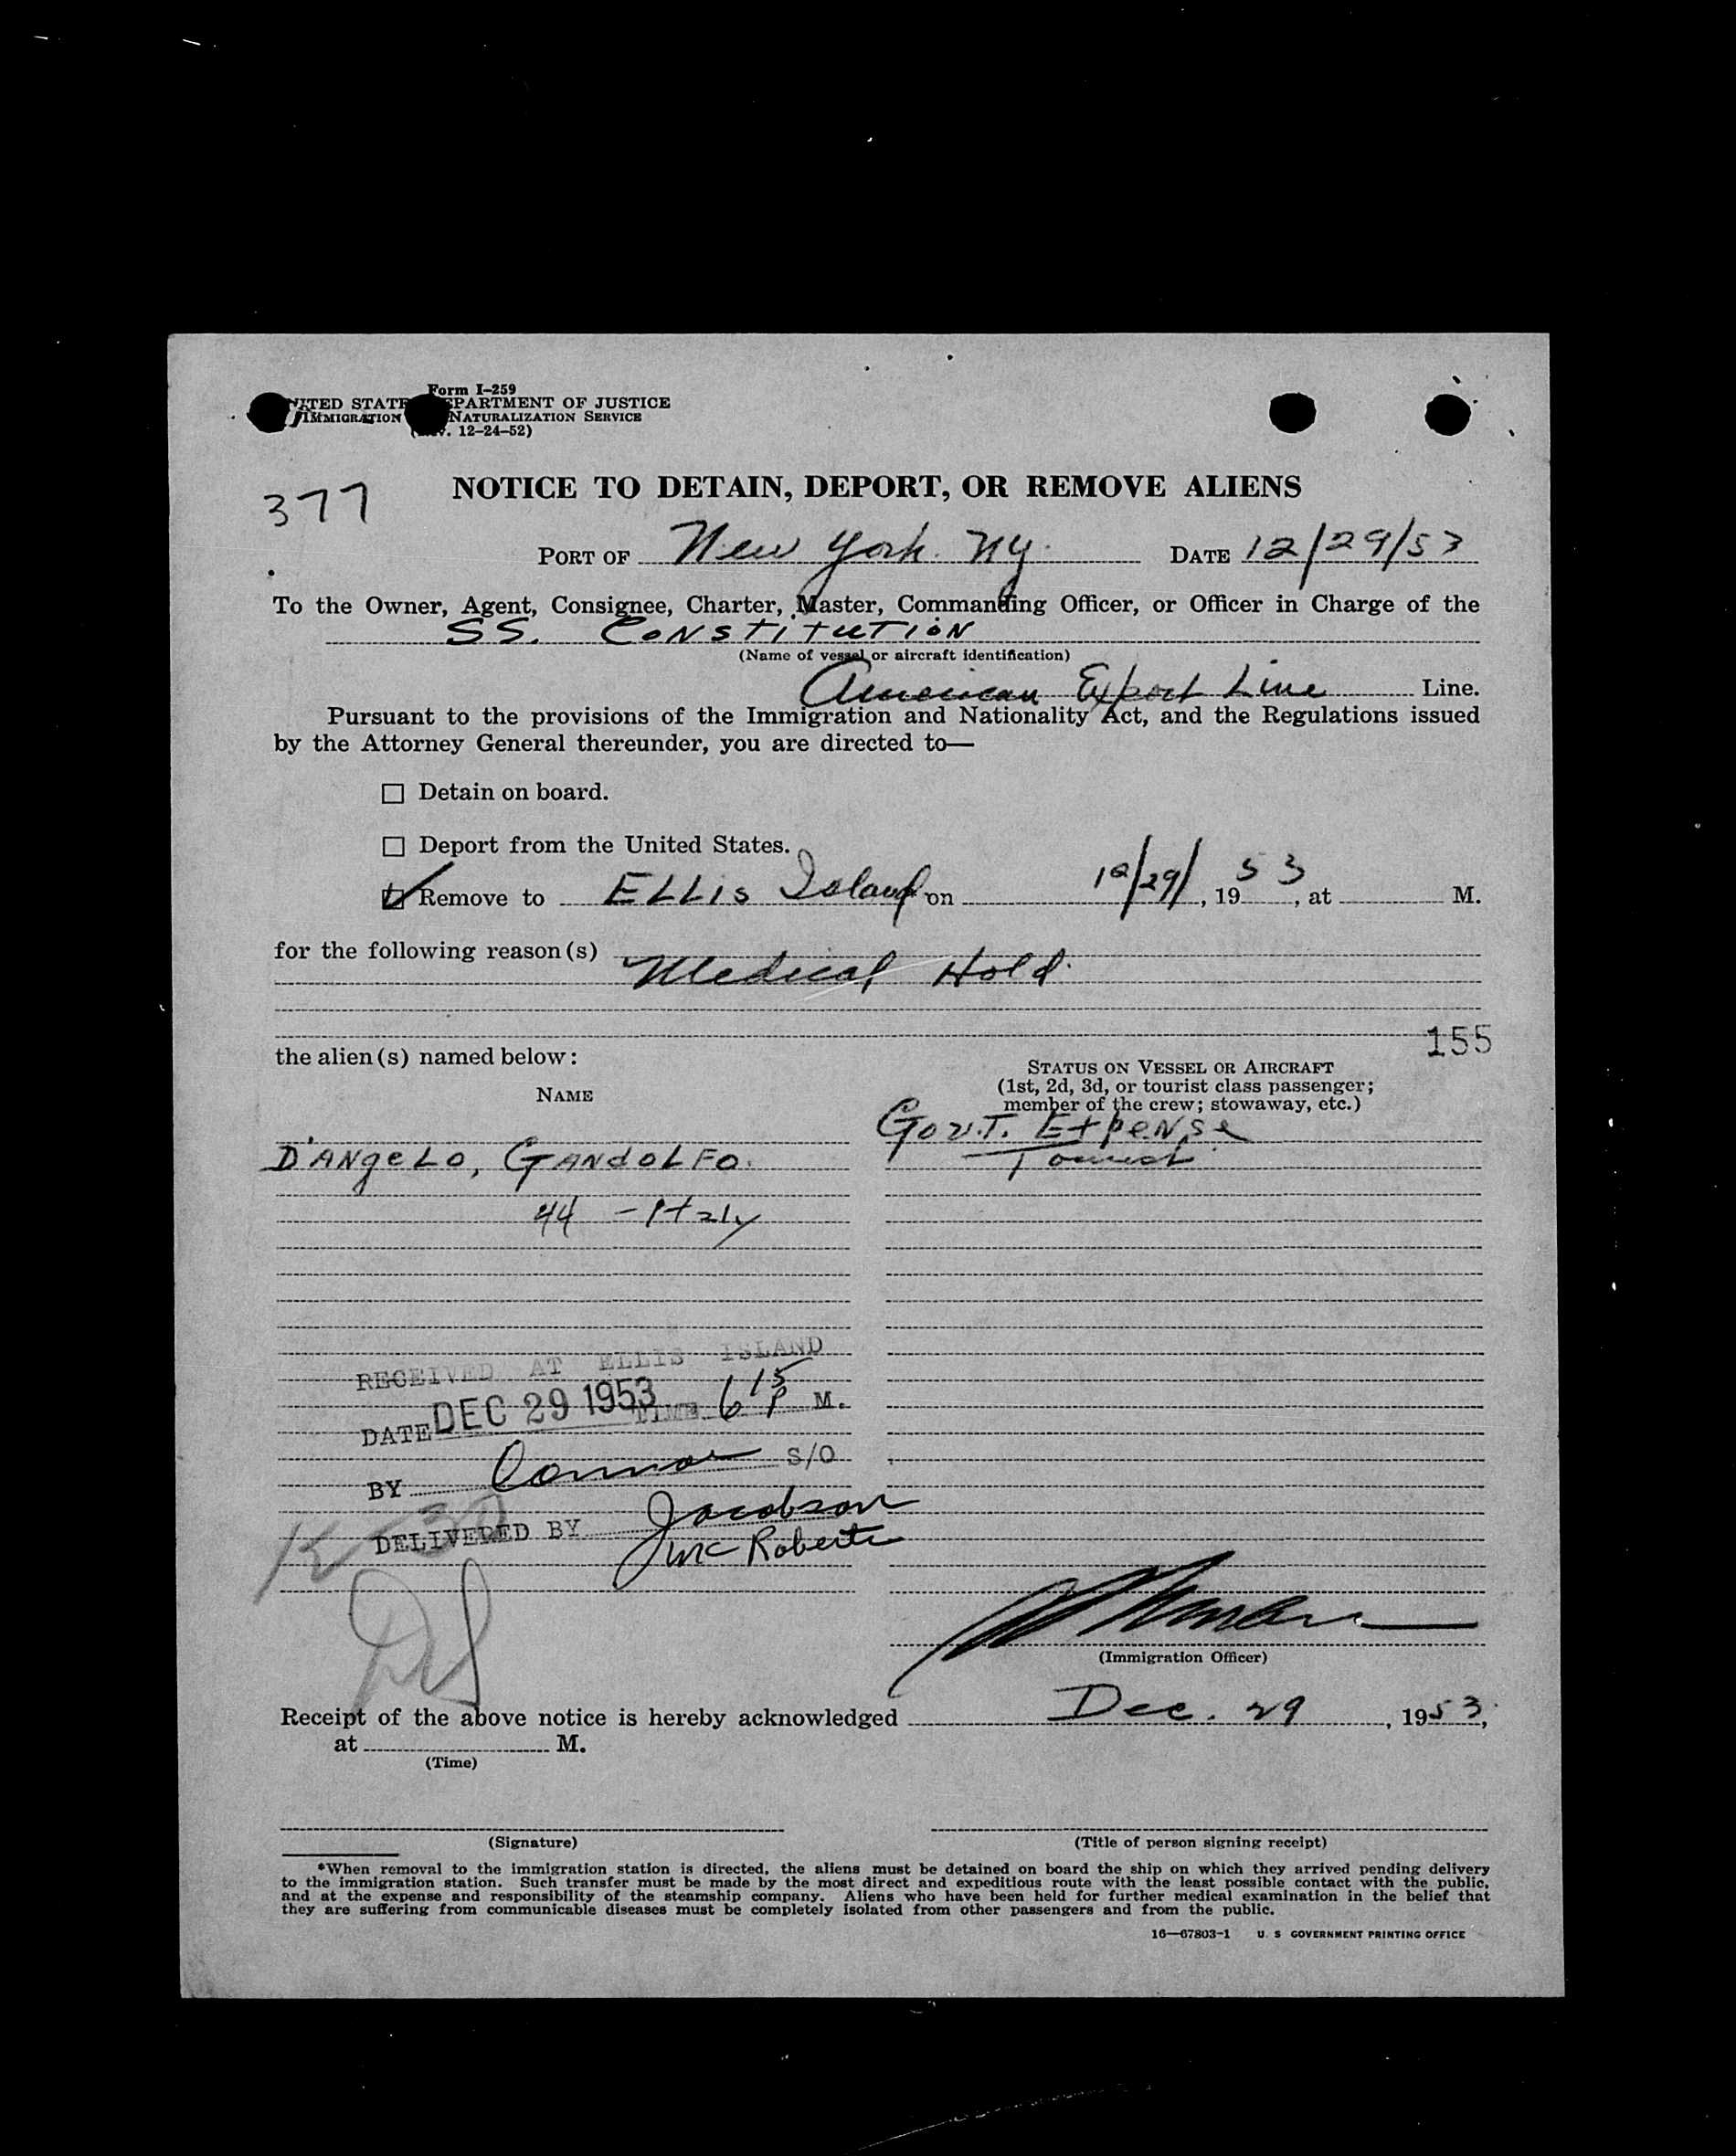 Form I-259
UNITED STATES DEPARTMENT OF JUSTICE
IMMIGRATION NATURALIZATION SERVICE
. 12-24-52)
377
NOTICE TO DETAIN, DEPORT, OR REMOVE ALIENS
PORT OF New York. NY. DATE 12/29/53
To the Owner, Agent, Consignee, Charter, Master, Commanding Officer, or Officer in Charge of the
SS. CONSTITUTION
(Name of vessel or aircraft identification)
American Export Line Line.
Pursuant to the provisions of the Immigration and Nationality Act, and the Regulations issued
by the Attorney General thereunder, you are directed to—
☐ Detain on board.
☐ Deport from the United States.
☑ Remove to ELLIS Island on 12/29/, 1953, at M.
for the following reason(s)
Medical Hold.
155
the alien(s) named below:
NAME
STATUS ON VESSEL OR AIRCRAFT
(1st, 2d, 3d, or tourist class passenger;
member of the crew; stowaway, etc.)
Gov.T. Expense
D'ANgeLo, GANdoLFo. Tourist
44 - Italy
RECEIVED AT ELLIS ISLAND
DATE DEC 29 1953 TIME 6 15 P M.
BY Connor S/O
K-30
DELIVERED BY Jacobson
McRoberts
(Immigration Officer)
Receipt of the above notice is hereby acknowledged Dec. 29, 1953,
at M.
(Time)
(Signature) (Title of person signing receipt)
*When removal to the immigration station is directed, the aliens must be detained on board the ship on which they arrived pending delivery
to the immigration station. Such transfer must be made by the most direct and expeditious route with the least possible contact with the public,
and at the expense and responsibility of the steamship company. Aliens who have been held for further medical examination in the belief that
they are suffering from communicable diseases must be completely isolated from other passengers and from the public.
16—67803-1 U. S GOVERNMENT PRINTING OFFICE